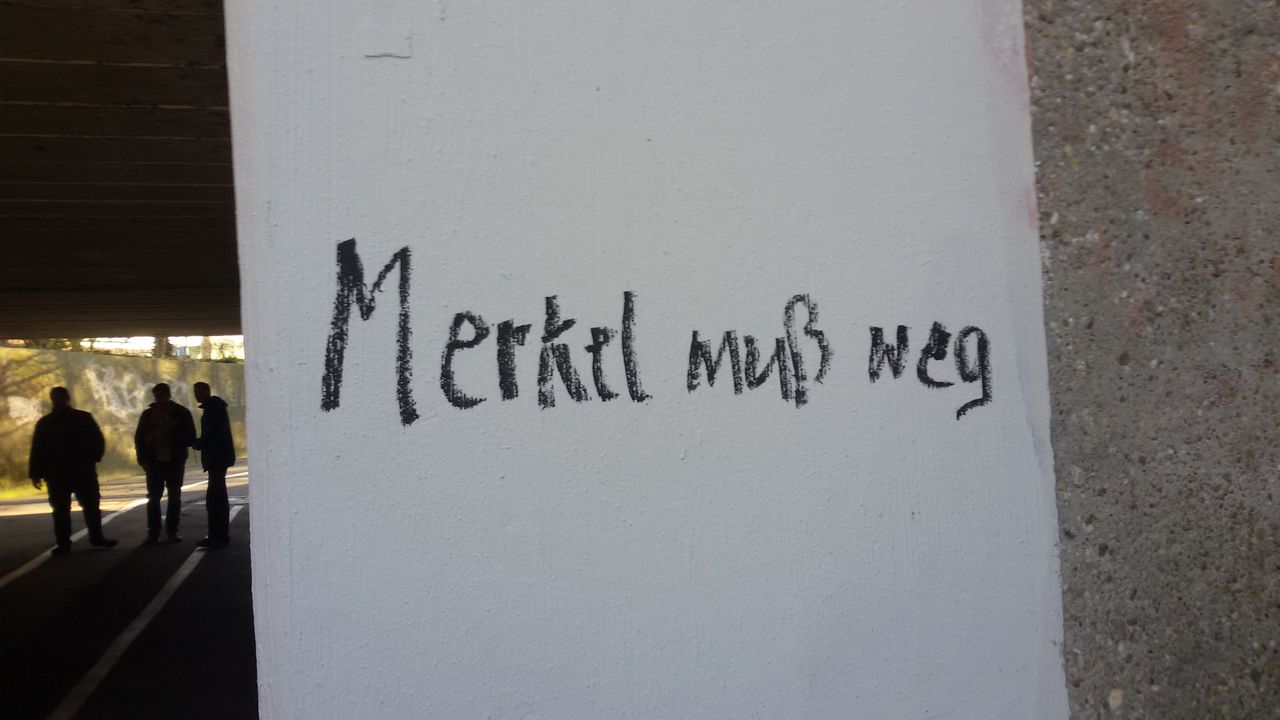 Merkel muß weg